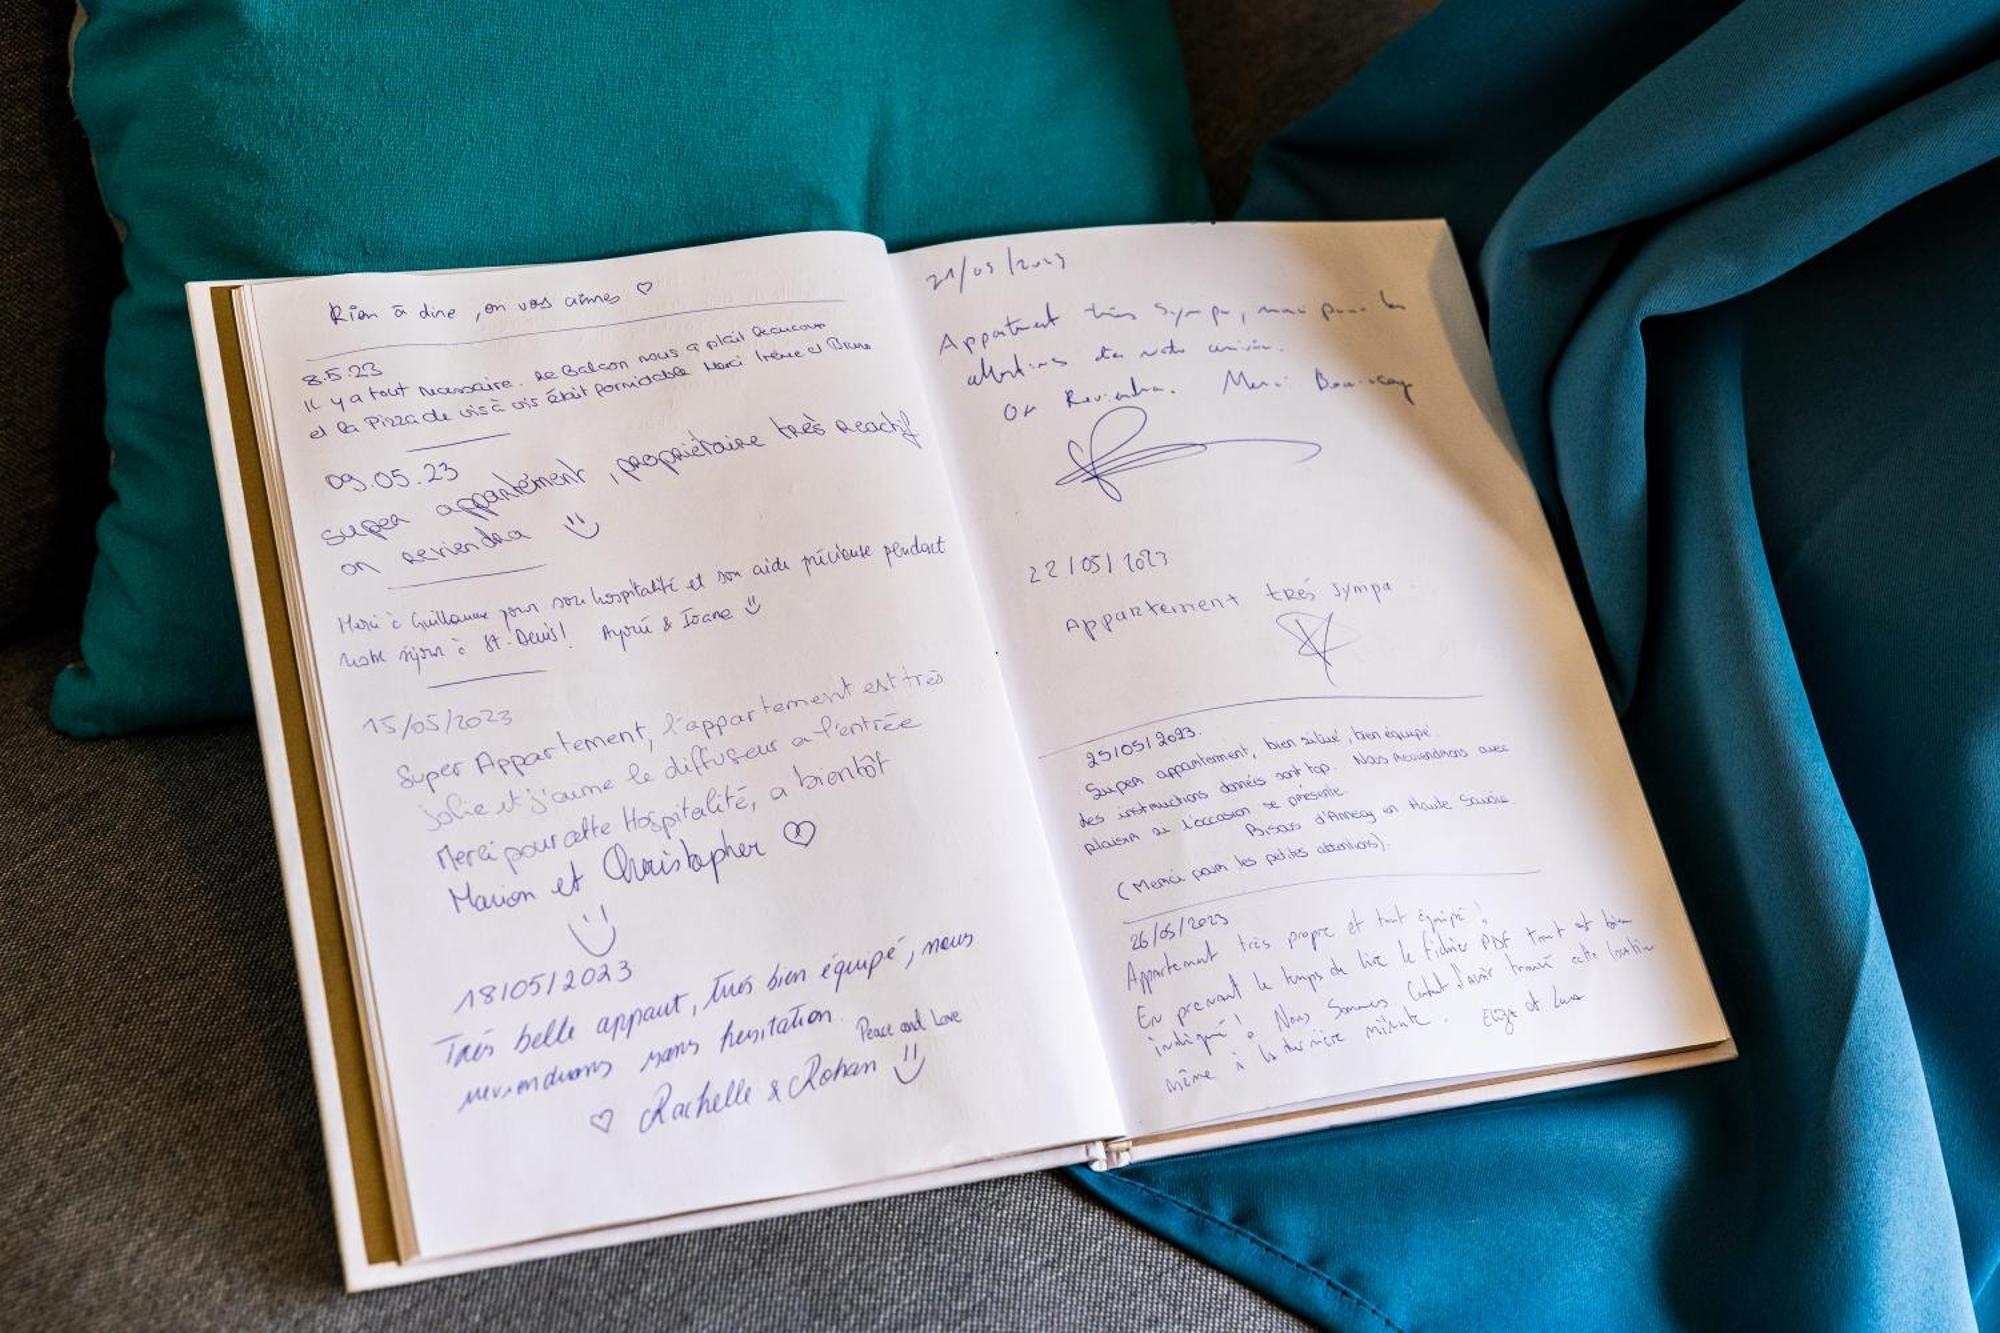 Rien à dire, on vous aimes ♡
8.5.23
Il y a tout necessaire. Le Balcon nous a plait beaucoup
et la Pizza de vis à vis était formidable Merci Irène et Bruno
09.05.23
super appartément, propriétaire très reactif
on reviendra
Merci à Guillaume pour son hospitalité et son aide précieuse pendant
notre séjour à St-Denis! &
15/05/2023
Super Appartement, l'appartement est très
jolie et j'aume le diffuseur a l'entrée
Merci pour cette Hospitalité, a bientôt
Marion et Christopher ♡
18/05/2023
Très belle appaut, très bien équipé, nous
reviendrons sans hesitation.
Peace and Love
♡ Rachelle & Rohan
21/05/2023
Appartement très sympa, merci pour les
attentions de notre arrivée.
On Reviendra. Merci
22/05/2023
Appartement trés sympa.
25/05/2023.
Super appartement, bien situé, bien équipé.
des instructions donnés sont top. Nous reviendrons avec
plaisir si l'occasion se présente.
Bisous d'Annecy en Haute Savoie.
(Merci pour les petites attentions).
26/05/2023
Appartement très propre et tout équipé!
En prenant le temps de lire le fichier PDF tout est bien
indiqué! Nous sommes content d'avoir trouvé cette location
même à la dernière minute. et